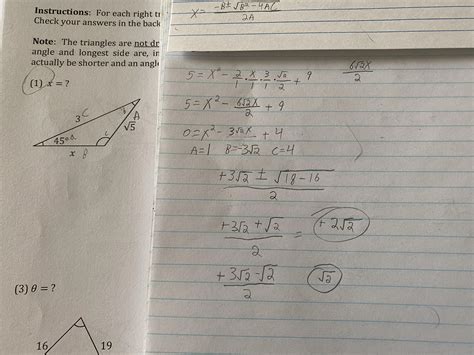 Instructions: For each right tr
Check your answers in the back
Note: The triangles are not dr
angle and longest side are, in
actually be shorter and an angle
(1) x = ?
3 C
B
A
√5
45° a.
c
x B
(3) θ = ?
16
19
x = -B ± √B² - 4AC / 2A
5 = x² - 2/1 · x/1 · 3/1 · √2/2 + 9
6√2x / 2
5 = x² - 6√2x/2 + 9
0 = x² - 3√2x + 4
A=1 B=-3√2 C=4
+3√2 ± √18-16 / 2
+3√2 + √2 / 2 = +2√2
+3√2 - √2 / 2 √2